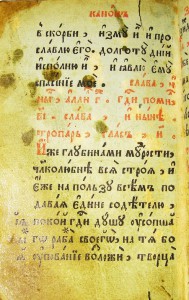 канонъ
в скорби, изму и, и про
славлю его. долготу дни
исполню и, и явлю ему
спасение мое.
слава, и ныне
алли г҃ди поми
слава, и ныне
тропарь, гласъ, и
Иже глубинами мудрости
чл҃колюбне вся строя, и
еже на пользу всемъ по
давая едине содетелю,
покои г҃ди душу усопша
го раба своего, на тя бо
упование возложи, творца